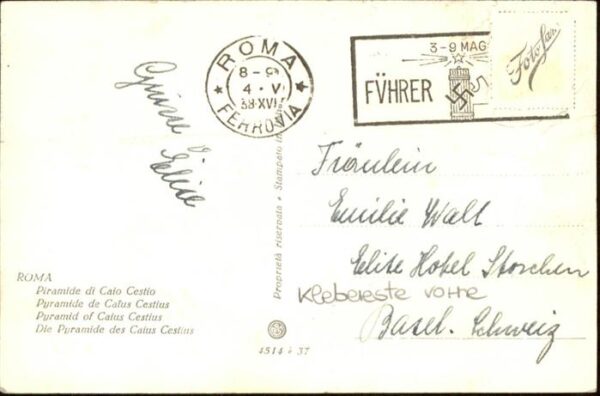 ROMA
8-9
4·V
38·XVI
FERROVIA
3-9 MAG
FÜHRER
Foto
Grüsse
Elise
Fräulein
Emilie Walt
Elite Hotel Storchen
Klebereste vorne
Basel. Schweiz
Proprietà riservata • Stampato in
ROMA
Piramide di Caio Cestio
Pyramide de Caïus Cestius
Pyramid of Caius Cestius
Die Pyramide des Caius Cestius
4514 - 37